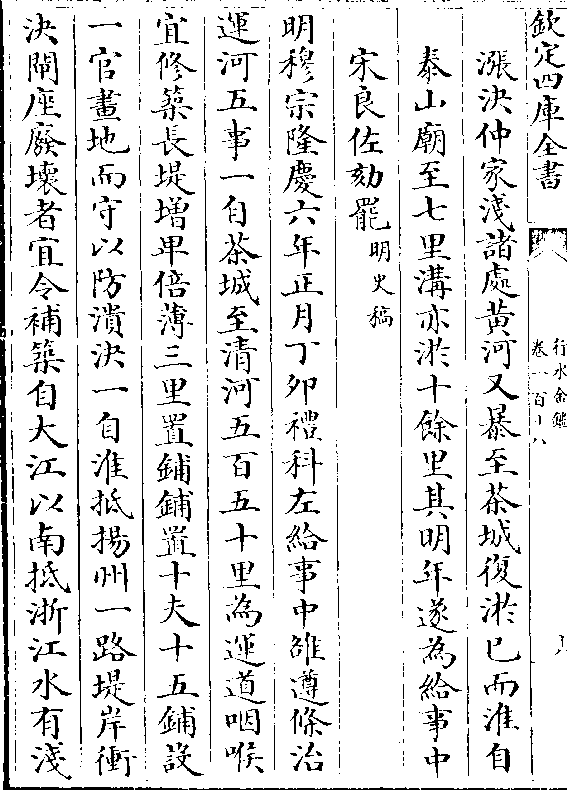 欽定四庫全書
行水金鑑
卷一百十八
漲決仲家淺諸處黃河又暴至茶城復淤已而淮自
泰山廟至七里溝亦淤十餘里其明年遂為給事中
宋良佐劾罷明史稿
明穆宗隆慶六年正月丁卯禮科左給事中雒遵條治
運河五事一自茶城至清河五百五十里為運道咽喉
宜修築長堤増卑倍薄三里置鋪鋪置十夫十五鋪設
一官畫地而守以防潰決一自淮抵揚州一路堤岸衝
決閘座廢壞者宜令補築自大江以南抵浙江水有淺